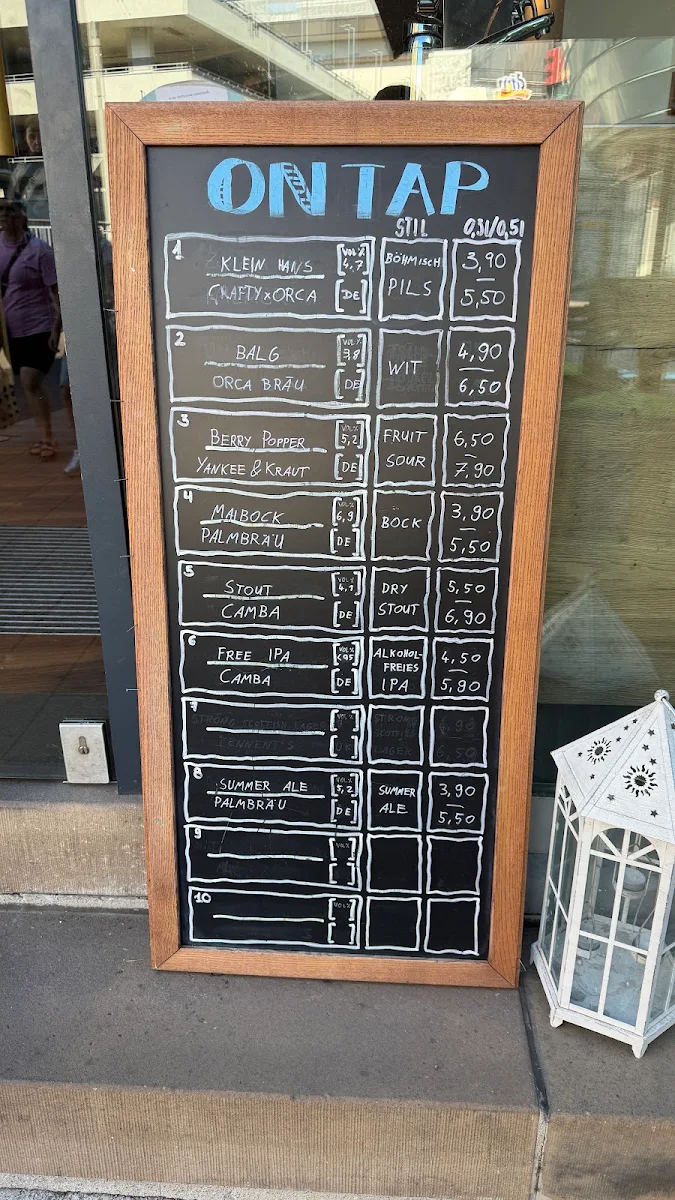 ON TAP
STIL 0,3l/0,5l
1 KLEIN HANS VOL% 4,7 BÖHMISCH 3,90
CRAFTY x ORCA DE PILS 5,50
2 BALG VOL% 3,8 WIT 4,90
ORCA BRÄU DE 6,50
3 BERRY POPPER VOL% 5,2 FRUIT 6,50
YANKEE & KRAUT DE SOUR 7,90
4 MAIBOCK VOL% 6,9 BOCK 3,90
PALMBRÄU DE 5,50
5 STOUT VOL% 4,1 DRY 5,50
CAMBA DE STOUT 6,90
6 FREE IPA VOL% <0,5 ALKOHOL- FREIES 4,50
CAMBA DE IPA 5,90
7
TENNENT'S UK LAGER 6,50
8 SUMMER ALE VOL% 5,2 SUMMER 3,90
PALMBRÄU DE ALE 5,50
9 VOL%
10 VOL%